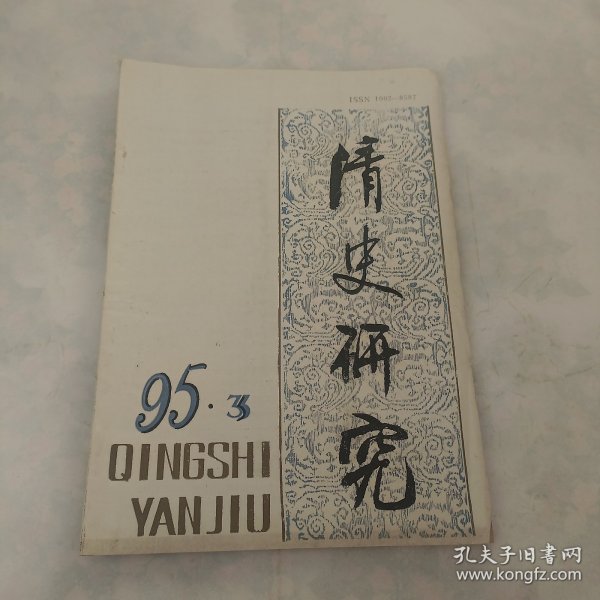 ISSN 1002—8587
清史研究
95·3
QINGSHI
YANJIU
孔夫子旧書网
www.kongfz.com